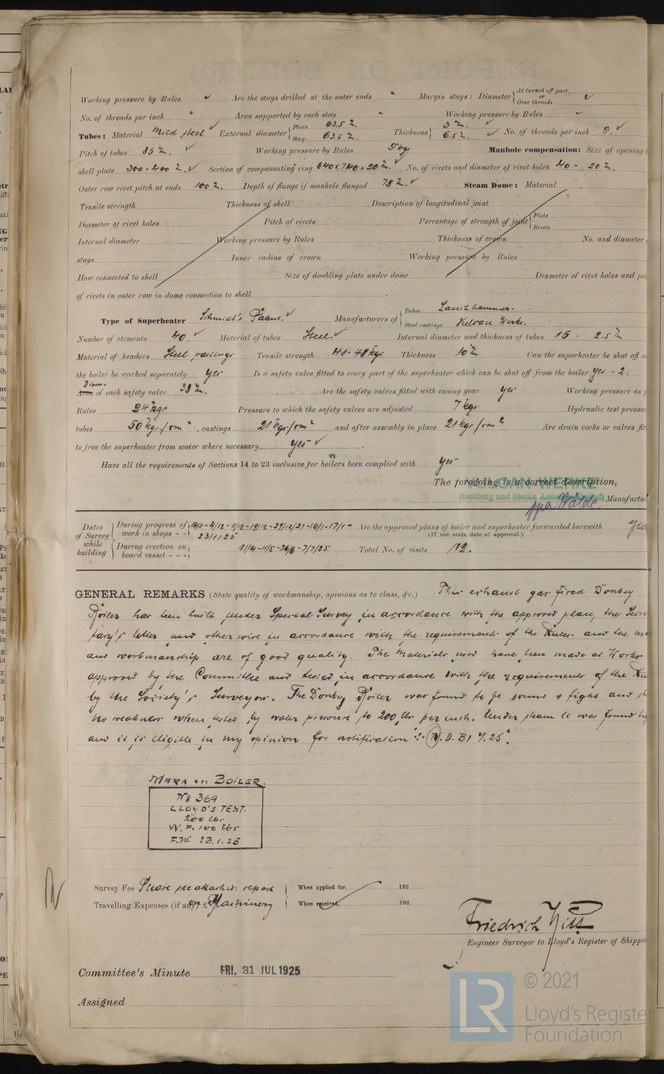 Working pressure by Rules ✓ Are the stays drilled at the outer ends " Margin stays: Diameter { At turned off part, or Over threads ✓
No. of threads per inch " Area supported by each stay " Working pressure by Rules ✓
Tubes: Material Mild steel ✓ External diameter { Plain 63.5 Stay 63.5 Thickness { 3 6.5 ✓ No. of threads per inch 9 ✓
Pitch of tubes Working pressure by Rules Manhole compensation: Size of opening
shell plate 300 × 400 ✓ Section of compensating ring No. of rivets and diameter of rivet holes 40 - 20
Outer row rivet pitch at ends 100 Depth of flange if manhole flanged 78 ✓ Steam Dome: Material
Tensile strength Thickness of shell Description of longitudinal joint
Diameter of rivet holes Pitch of rivets Percentage of strength of joint { Plate Rivets
Internal diameter Working pressure by Rules Thickness of crown No. and diameter
stays Inner radius of crown Working pressure by Rules
How connected to shell Size of doubling plate under dome Diameter of rivet holes and
of rivets in outer row in dome connection to shell
Type of Superheater Schmidt's Patent ✓ Manufacturers of { Tubes Steel castings Vulcan Werke.
Number of elements 40 ✓ Material of tubes Steel ✓ Internal diameter and thickness of tubes 15 - 2.5
Material of headers Steel castings Tensile strength 41-48 kgr Thickness 10 Can the superheater be shut off
the boiler be worked separately yes Is a safety valve fitted to every part of the superheater which can be shut off from the boiler yes - 2.
Diam. of each safety valve 38 ✓ Are the safety valves fitted with easing gear yes Working pressure as
Rules Pressure to which the safety valves are adjusted 7 kgr Hydraulic test pressure
tubes 50 kgr/cm², castings 21 kgr/cm² and after assembly in place 21 kgr/cm² Are drain cocks or valves
to free the superheater from water where necessary yes ✓
Have all the requirements of Sections 14 to 23 inclusive for boilers been complied with yes
The foregoing is a correct description,
VULCAN-WERKE
Hamburg und Stettin
ppa
Dates of Survey while building { During progress of work in shops - - 23/1/25 Are the approved plans of boiler and superheater forwarded herewith
(If not state date of approval.)
During erection on board vessel - - - Total No. of visits 12.
GENERAL REMARKS (State quality of workmanship, opinions as to class, &c.) This exhaust gas fired Donkey
Boiler has been built under Special Survey in accordance with the approved plan, the
letter and otherwise in accordance with the requirements of the Rules and the
and workmanship are of good quality. The Materials used have been made at Works
approved by the Committee and tested in accordance with the requirements of the
by the Society's Surveyors. The Donkey Boiler was found to be sound & tight and
no weakness when tested by water pressure to 200 lbs per inch. Under steam it was found
and it is eligible in my opinion for notification
MARK ON BOILER.
No 369
LLOYD'S TEST.
200 lbs
W.P. 100 lbs
F.W. 23.1.25
Survey Fee Please see attached report When applied for, 192
Travelling Expenses (if any) on Machinery When received, 192
Friedrich
Engineer Surveyor to Lloyd's Register of
Committee's Minute FRI. 31 JUL 1925
Assigned
LR
© 2021
Lloyd's Register
Foundation